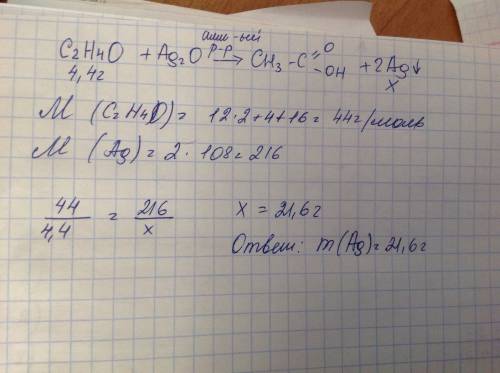 амм-ый
C2H4O + Ag2O р-р → CH3 - C =O -OH + 2Ag↓
4,4г x
M (C2H4O) = 12·2+4+16 = 44г/моль
M (Ag) = 2·108 = 216
44/4,4 = 216/x x = 21,6г
Ответ: m(Ag) = 21,6г